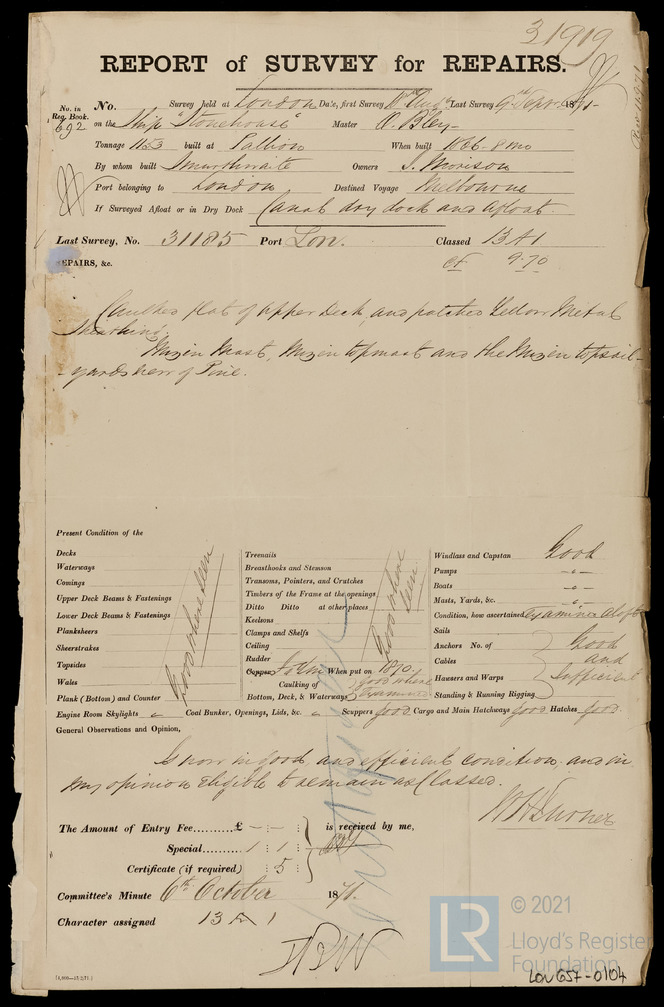 31919
REPORT of SURVEY for REPAIRS.
No. in Reg. Book. 692
No. Survey held at London Date, first Survey Augt Last Survey 9th Sepr. 1871
on the Ship "Stonehouse" Master O. Bley
Tonnage 1153 built at Pallion When built 1866-8mo
By whom built Smurthwaite Owners J. Morison
Port belonging to London Destined Voyage Melbourne
If Surveyed Afloat or in Dry Dock Canal dry dock and afloat
Last Survey, No. 31185 Port Lon. Classed 13 A 1
REPAIRS, &c. 9.70
Caulked flat of upper deck, and patched Yellow Metal
Sheathing.
Mizen Mast, Mizen topmast and the Mizen topsail-
-yards new of Pine.
Present Condition of the
Decks
Waterways
Comings
Upper Deck Beams & Fastenings
Lower Deck Beams & Fastenings
Planksheers
Sheerstrakes
Topsides
Wales
Plank (Bottom) and Counter
Good where seen
Treenails
Breasthooks and Stemson
Transoms, Pointers, and Crutches
Timbers of the Frame at the openings
Ditto Ditto at other places
Keelsons
Clamps and Shelfs
Ceiling
Rudder
Good where seen
Copper Y M When put on 1870
Caulking of Bottom, Deck, & Waterways good where examined
Windlass and Capstan Good
Pumps -o-
Boats -o-
Masts, Yards, &c. -o-
Condition, how ascertained Examined Aloft
Sails
Anchors No. of
Cables
Hausers and Warps
Standing & Running Rigging
Good and Sufficient
Engine Room Skylights Coal Bunker, Openings, Lids, &c. Scuppers good Cargo and Main Hatchways good Hatches good.
General Observations and Opinion,
Is now in good and efficient condition, and in
my opinion Eligible to remain as Classed.
W H Turner
The Amount of Entry Fee.........£ - : - : is received by me,
Special......... 1 : 1 :
Certificate (if required) : 5 :
Committee's Minute 6th October 1871.
Character assigned 13 A 1
LR
© 2021
Lloyd's Register
Foundation
LON657-0104